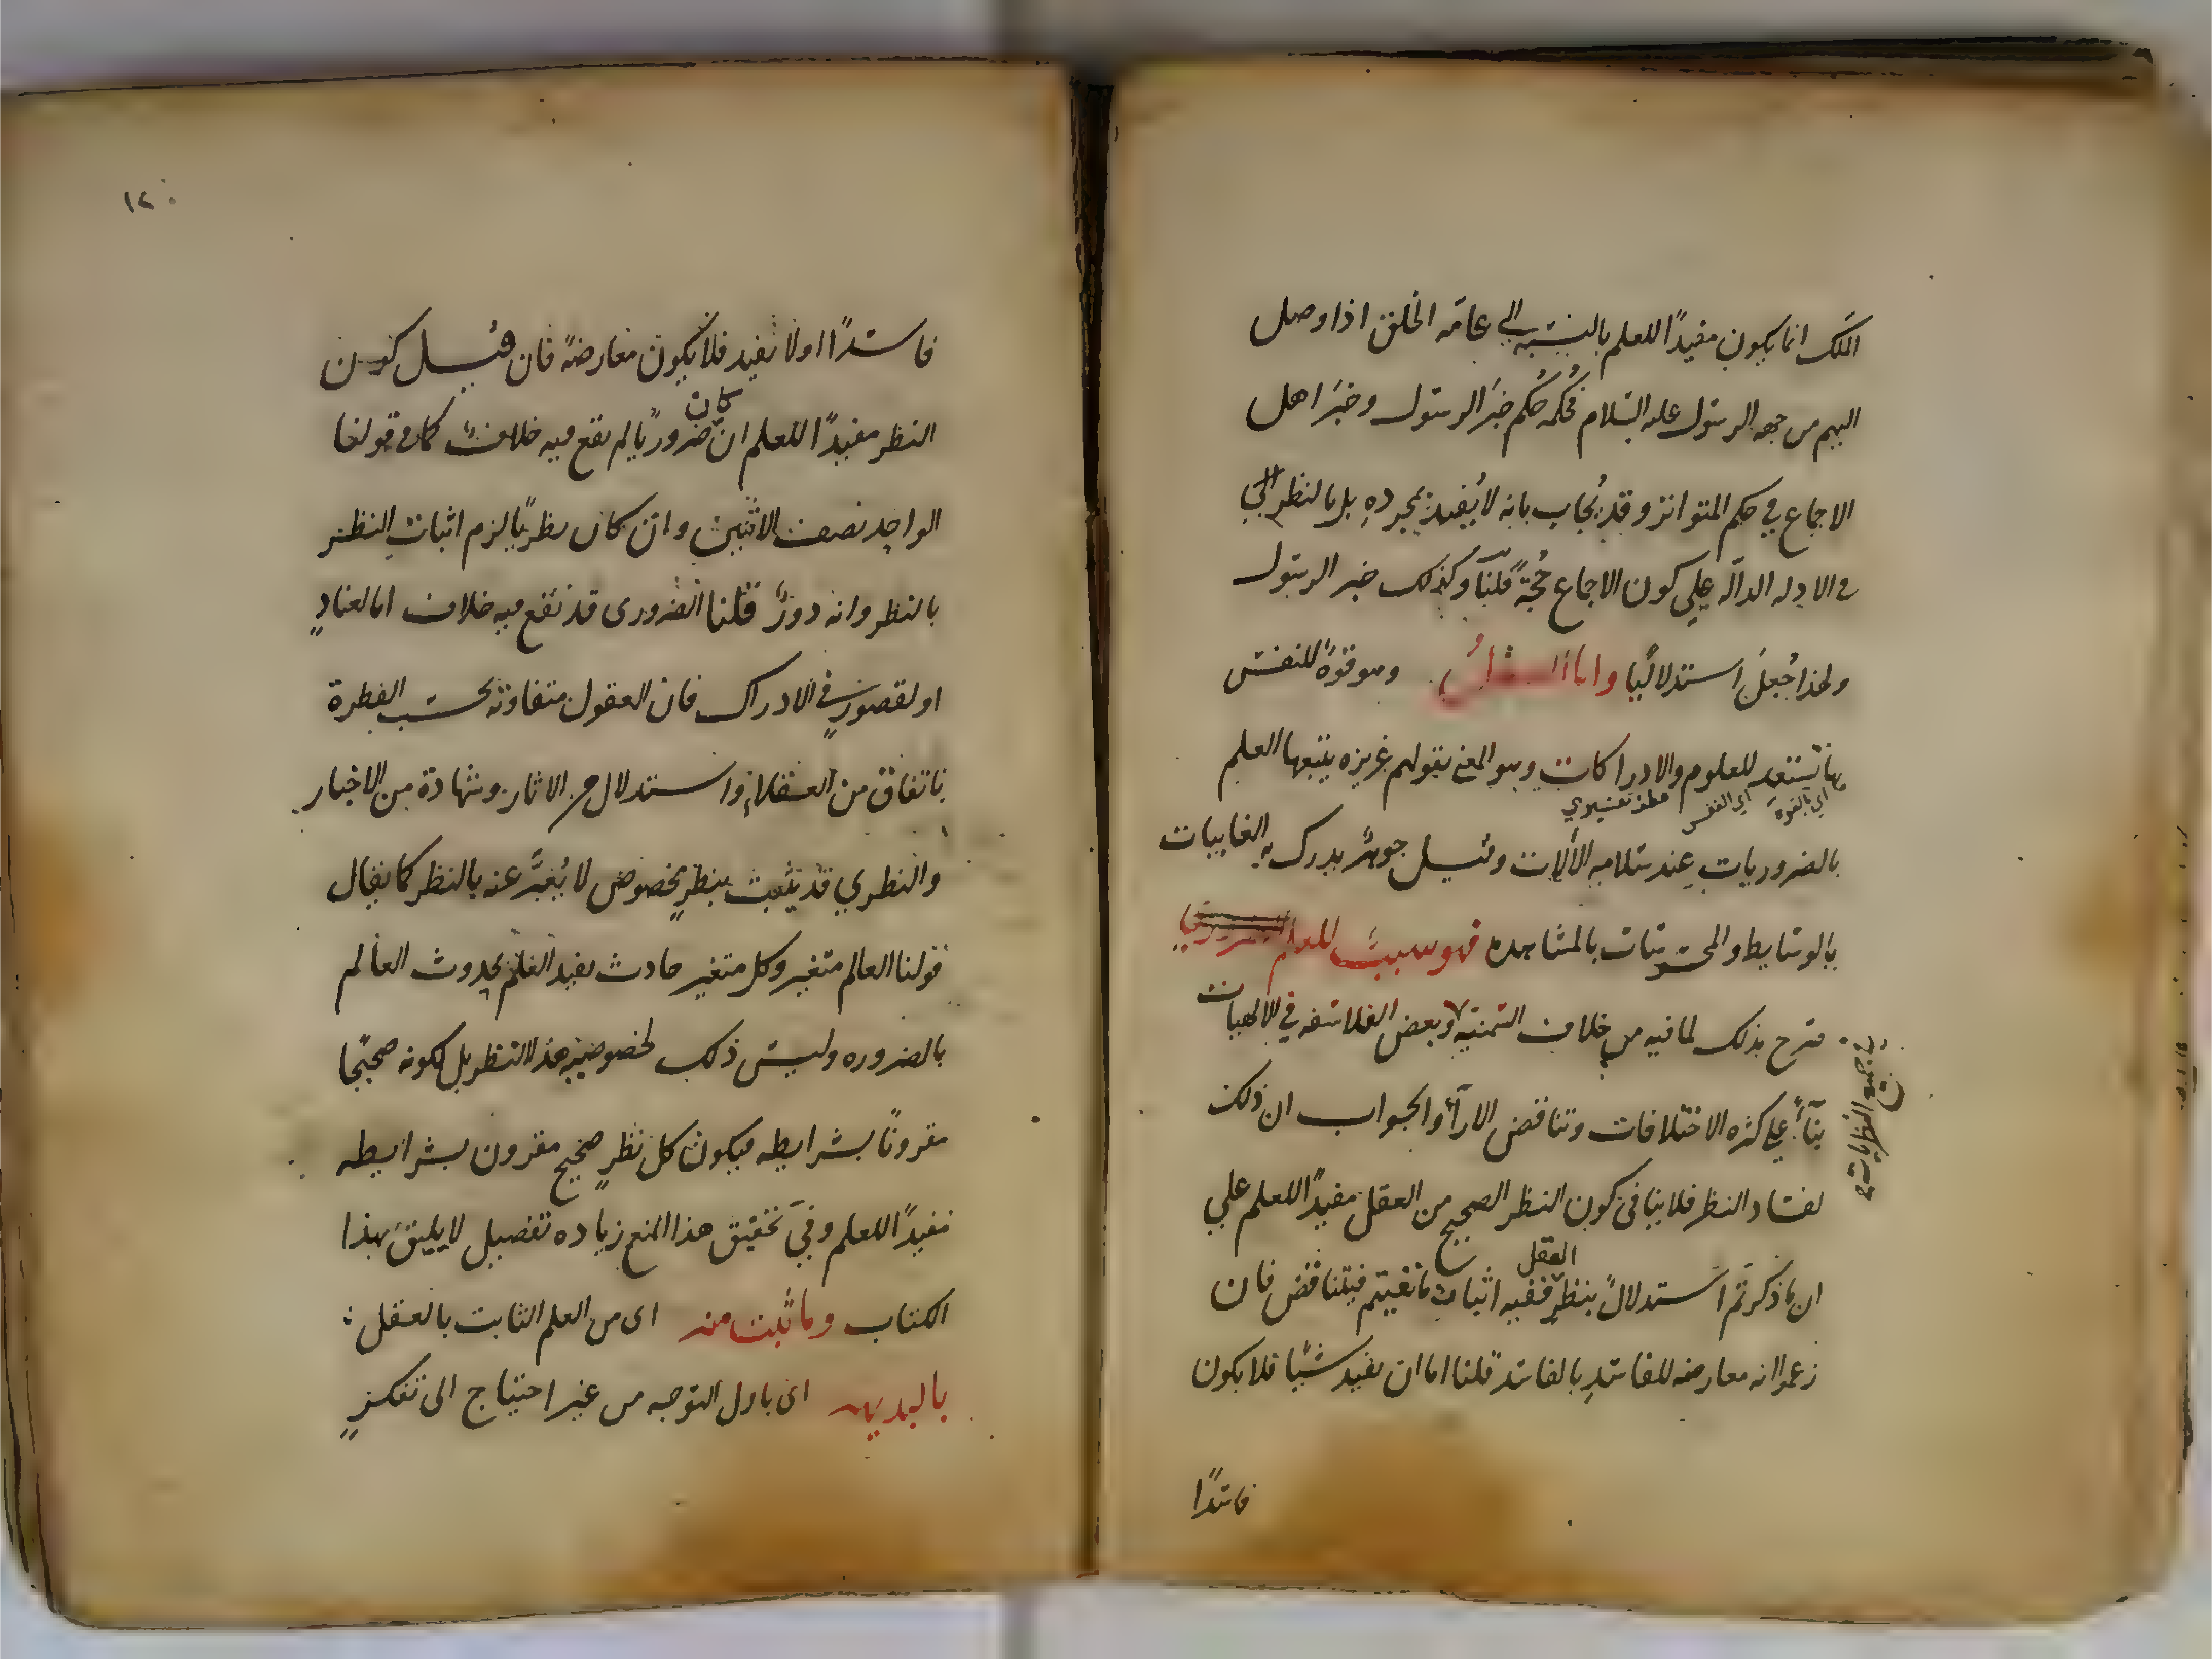 الملك انما يكون مفيدًا للعلم بالنسبه الي عامّه الخلق اذا وصل
اليهم من جهه الرسول عليه السلام فحُكمه حُكم خبَر الرسول وخبَر اهل
الاجماع في حكم المتواتر وقد يُجاب بانه لا يُفيد بمجرده بل بالنظر الي
الادله الدالّه علي كون الاجماع حُجّةً قلنا وكذلك خبر الرسول
ولهذا جُعلَ استدلاليًا واما العقل وهو قوةٌ للنفس
بها تستعد للعلوم والادراكات وهو المعني بقولهم غريزه يتبعها العلم
اي بالقوة اي النفس
بالضروريات عند سلامه الألات وقيل جوهرٌ يدرك به الغايبات
بالوسايط والمحسوسات بالمشاهده فهو سببٌ للعلم
صرح بذلك لما فيه من خلاف السمنيه وبعض الفلاسفه في الالهيات
في جميع النظريات
بنآءً علي كثره الاختلافات وتناقض الارآء والجواب ان ذلك
لفساد النظر فلا ينافي كون النظر الصحيح من العقل مفيدًا للعلم علي
ان ما ذكرتم استدلالٌ بنظرِ العقل ففيه اثبات ما نفيتم فيتناقض فان
زعموا انه معارضه للفاسدِ بالفاسد قلنا اما ان يفيد شيًا فلا يكون
فاسدًا
١٢٠
فاسدًا اولا يفيد فلا يكون معارضةً فان قيل كون
النظر مفيدًا للعلم ان كان ضروريًا لم يقع فيه خلافٌ كما في قولنا
الواحد نصف الاثنين وان كان نظريًا لزم اثبات النظر
بالنظر وانه دورٌ قلنا الضروري قد يقع فيه خلاف اما لعنادٍ
او لقصورٍ في الادراك فان العقول متفاوته بحسب الفطرة
باتفاق من العقلاءِ واستدلال من الاثار وشهادة من الاخبار
والنظري قد يثبت بنظرٍ مخصوص لا يُعبَّر عنه بالنظر كما يقال
قولنا العالم متغير وكل متغير حادث يفيد العلم بحدوث العالم
بالضروره وليس ذلك لخصوصيه هذا النظر بل لكونه صحيحًا
مقرونًا بشرايطه فيكون كل نظرٍ صحيحٍ مقرون بشرايطه
مفيدًا للعلم وفي تحقيق هذا المنع زياده تفصيل لا يليق بهذا
الكتاب وما ثبت منه اى من العلم الثابت بالعقل
بالبديهه اى باول التوجه من غير احتياج الى تفكرٍ